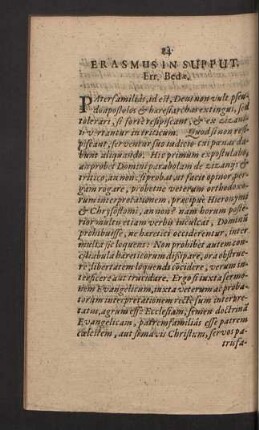 84
ERASMUS IN SUPPUT.
Err. Bedæ.
PAterfamiliâs, id est, Deus non vult pseu-
doapostolos & hæresiarchas extingui, sed
tolerari, si fortè resipiscant, & ex zizaniis
vertantur in triticum. Quod si non resi-
piscant, serventur suo iudici cui pœnas da-
bunt aliquando. Hic primum expostulabo,
an probet Domini parabolam de zizaniis &
tritico, an non. si probat, ut facit opinor, per-
gam rogare, probetne veterum orthodoxo-
rum interpretationem, præcipuè Hieronymi
& Chrysostomi, an non? nam horum poste-
rior multis etiam verbis inculcat, Dominū
prohibuisse, ne hæretici occiderentur, inter
multa sic loquens: Non prohibet autem con-
ciliabula hæreticorum dissipare, ora obstrue-
re, libertatem loquendi cōcidere, verum in-
terficere aut trucidare. Ergo si iuxta sermo-
nem Evangelicum, iuxta veterum ac proba-
torum interpretationem rectè sum interpre-
tatus, agrum esse Ecclesiam, semen doctrinā
Evangelicam, patremfamiliâs esse patrem
cælestem, aut ipsum vis Christum, servos pa-
trisfa-